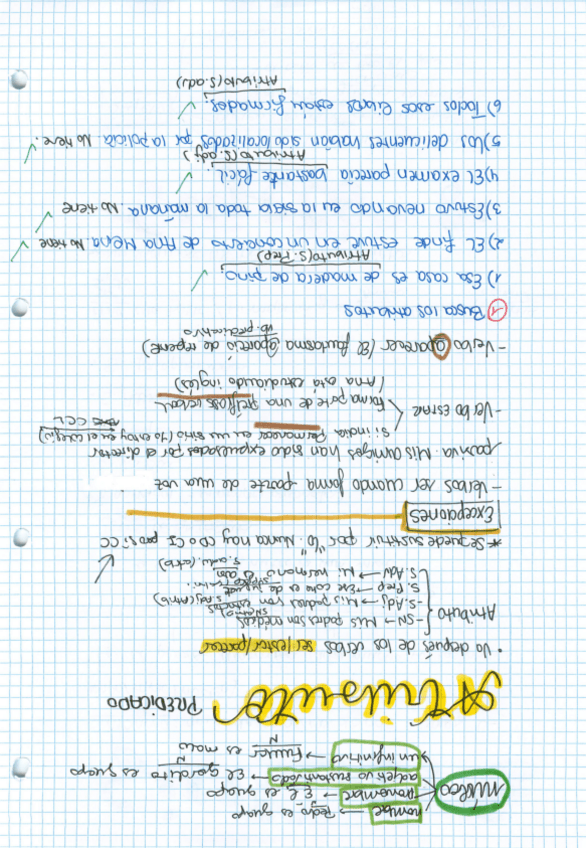 nombre → Pedro es guapo
núcleo
pronombre → Él es guapo
adjetivo sustantivado → El gordito es guapo
N
un infinitivo → Fumar es malo
N
Atributo PREDICADO
• Va después de los verbos ser/estar/parecer
Atributo
- SN → Mis padres son médicos
- S. Adj → Mis padres son
S. Prep → Ese coche es de
S. Adv → Mi hermano es
* Se puede sustituir por "lo". Nunca hay CD o CI pero si CC
Excepciones
- Verbos ser cuando forma parte de una voz
pasiva Mis amigos han sido expulsados por el director
Si indica Permanecer en un sitio (Yo estoy en el colegio)
CCL
- Verbo estar
forma parte de una perífrasis verbal
(Ana está estudiando inglés)
- Verbo aparecer (El fantasma apareció de repente)
vb. predicativo
1 Busca los atributos
1) Esa casa es de madera de pino.
Atributo (S. Prep)
2) El finde estuve en un concierto de Ana Mena. No tiene
3) Estuvo nevando en la sierra toda la mañana. No tiene
4) El examen parecía bastante fácil.
Atributo (S. adj)
5) Los delicuentes habían sido localizados por la policía. No tiene.
6) Todos esos libros están firmados.
Atributo (S. adj)